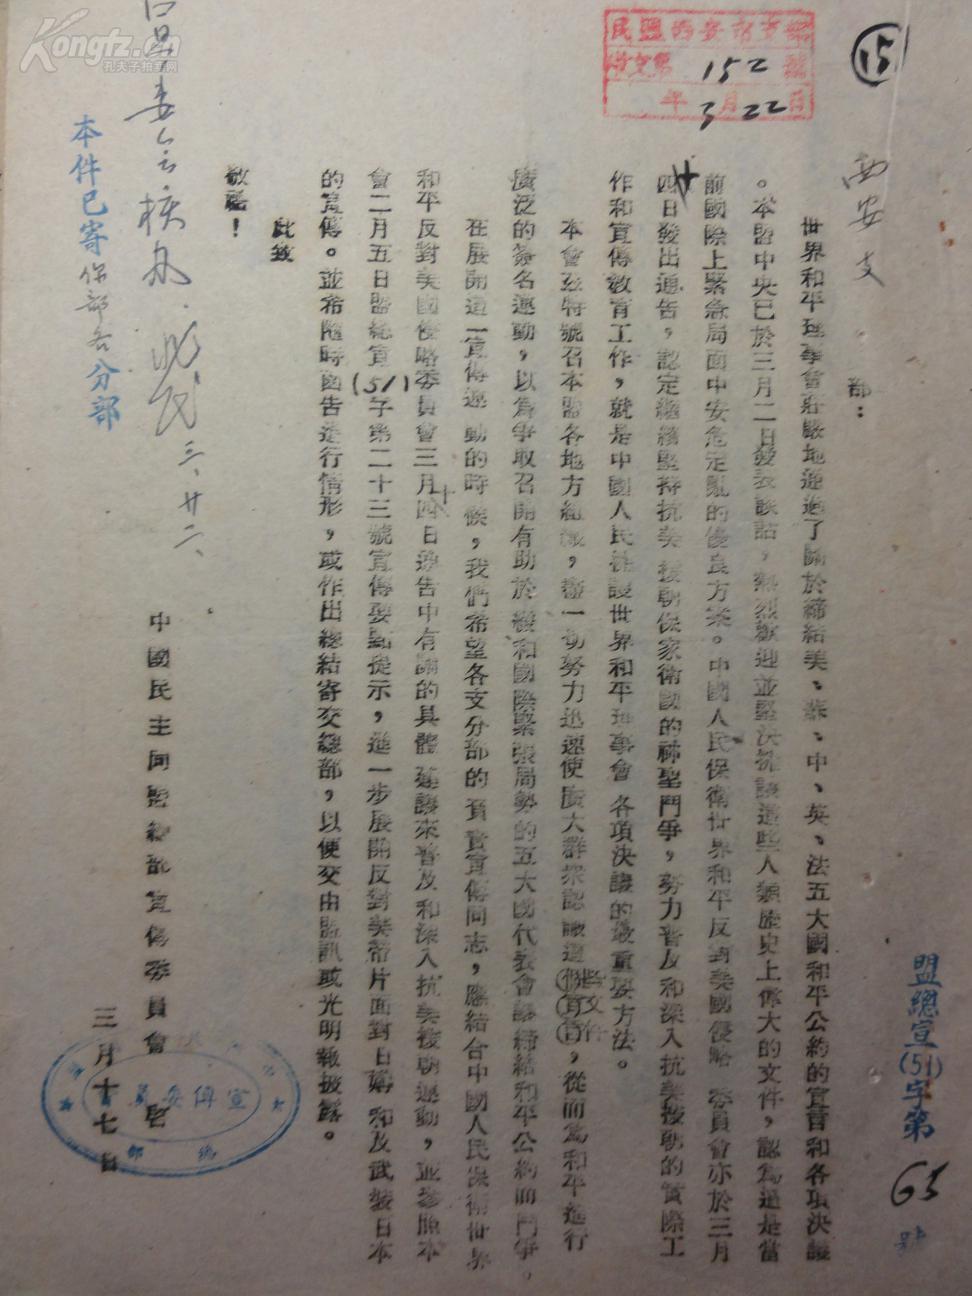 15
民盟西安市支部
收文第152號
年3月22日
盟總宣(51)字第65號
西安支部：
世界和平理事會莊嚴地通過了關於締結美、蘇、中、英、法五大國和平公約的宣言和各項決議
。本盟中央已於三月二日發表談話，熱烈歡迎並堅決擁護這些人類歷史上偉大的文件，認為這是當
前國際上緊急局面中安危定亂的優良方案。中國人民保衛世界和平反對美國侵略委員會亦於三月
十四日發出通告，認定繼續堅持抗美援朝保家衛國的神聖鬥爭，努力普及和深入抗美援朝的實際工
作和宣傳教育工作，就是中國人民擁護世界和平理事會各項決議的最重要方法。
本會茲特號召本盟各地方組織，盡一切努力迅速使廣大群眾認識這些文件，從而為和平進行
廣泛的簽名運動，以為爭取召開有助於緩和國際緊張局勢的五大國代表會議締結和平公約而鬥爭。
在展開這一宣傳運動的時候，我們希望各支分部的負責宣傳同志，應結合中國人民保衛世界
和平反對美國侵略委員會三月十四日通告中有關的具體建議來普及和深入抗美援朝運動，並參照本
會二月五日盟總宣(51)字第二十三號宣傳要點提示，進一步展開反對美帝片面對日媾和及武裝日本
的宣傳。並希隨時函告進行情形，或作出總結寄交總部，以便交由盟訊或光明報披露。
此致
敬禮！
中國民主同盟總部宣傳委員會啟
三月十七日
宣傳委員
總部
本件已寄你部各分部
三、廿二、
Kongfz.cn
孔夫子拍卖网